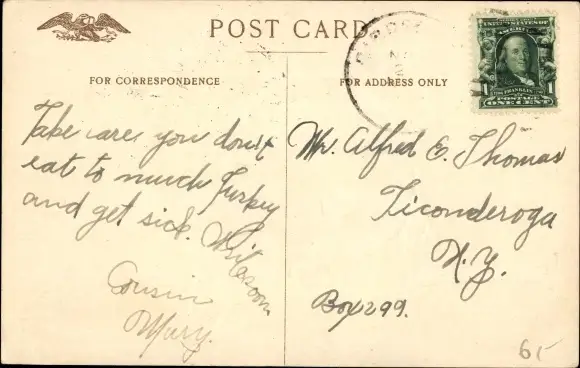 POST CARD
FOR CORRESPONDENCE
FOR ADDRESS ONLY
Take care you don't
eat to much Turkey
and get sick. Write soon
Cousin
Mary.
Mr. Alfred E. Thomas
Ticonderoga
N.Y.
Box 299.
UNITED STATES OF AMERICA
FRANKLIN
1 1
POSTAGE
ONE CENT
65